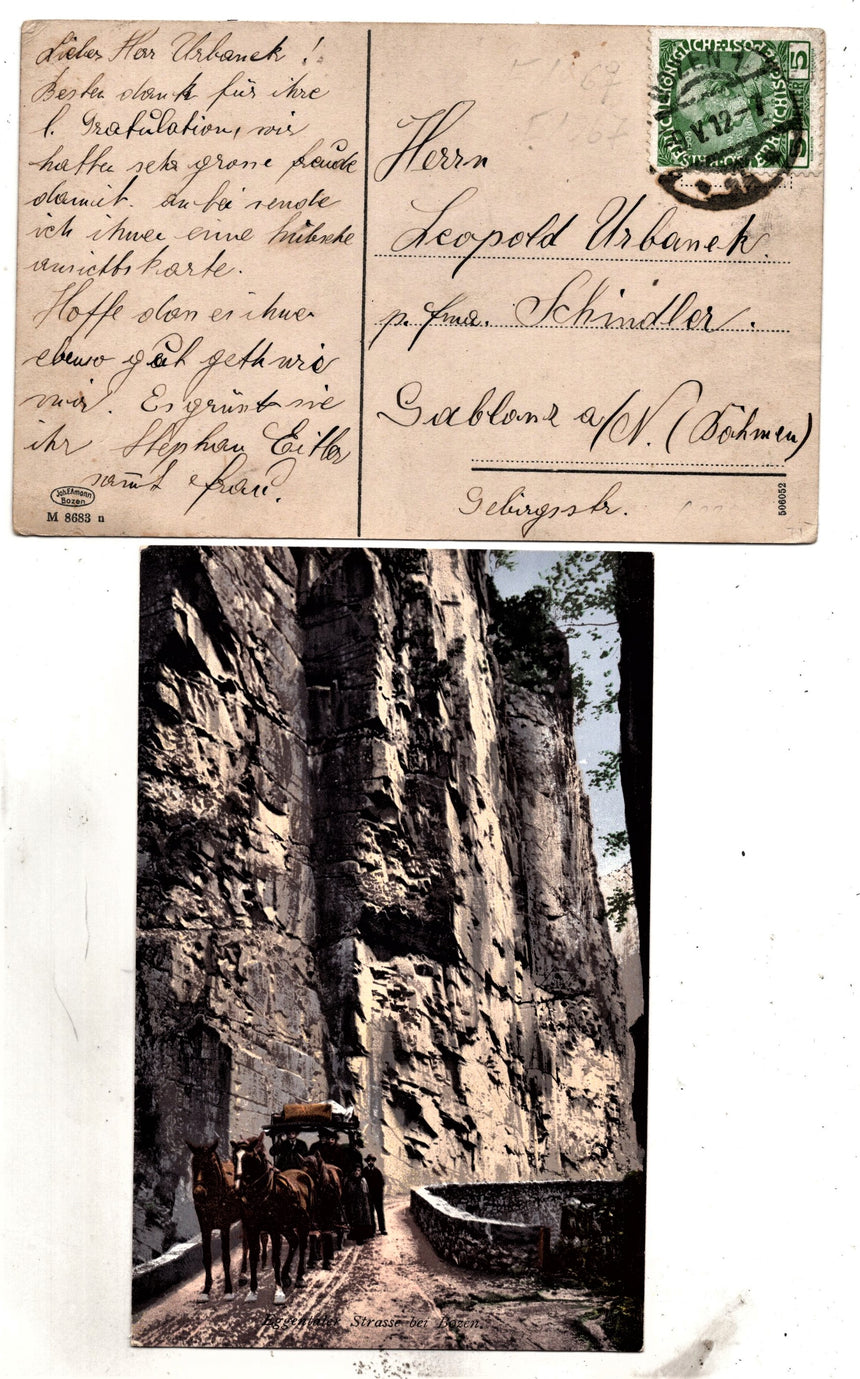 Lieber Herr Urbanek!
Besten dank für ihre
l. Gratulation, wir
hatten sehr grosse freude
damit. anbei sende
ich ihnen eine hübsche
ansichtskarte.
Hoffe das es ihnen
ebenso gut geth wie
mir. Es grünst sie
ihr Stephan Eitler
samt frau.
Joh. F. Amonn
Bozen
M 8683 n
5
V. 12
Herrn
Leopold Urbanek.
p. fma. Schindler.
Gablonz a/N. (Böhmen)
Gebirgsstr.
506052
Eggentaler Strasse bei Bozen.